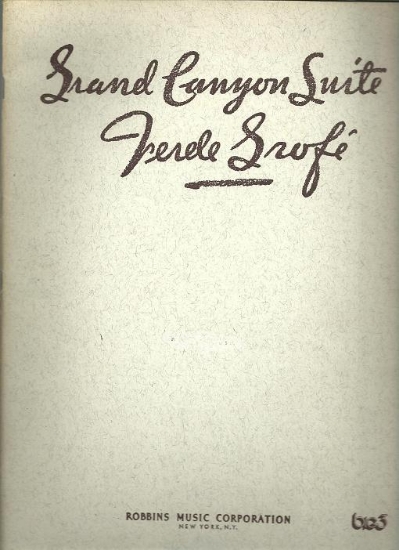 Grand Canyon Suite
Ferde Grofé
ROBBINS MUSIC CORPORATION
NEW YORK, N.Y.